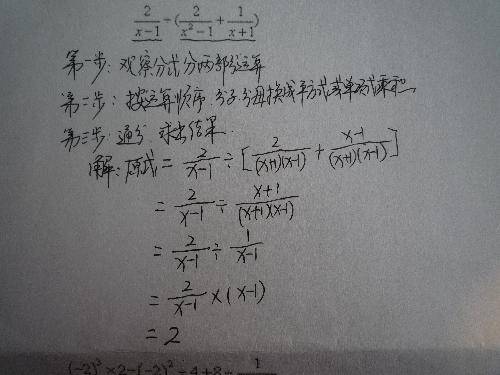 2/(x-1) ÷ (2/(x²-1) + 1/(x+1))
第一步：观察分式分两部分运算
第二步：按运算顺序，分子、分母换成平方式或单项式乘积
第三步：通分 求出结果.
解：原式 = 2/(x-1) ÷ [2/((x+1)(x-1)) + (x-1)/((x+1)(x-1))]
= 2/(x-1) ÷ (x+1)/((x+1)(x-1))
= 2/(x-1) ÷ 1/(x-1)
= 2/(x-1) × (x-1)
= 2
(-2)³×2-(-2)²÷4+8÷ 1